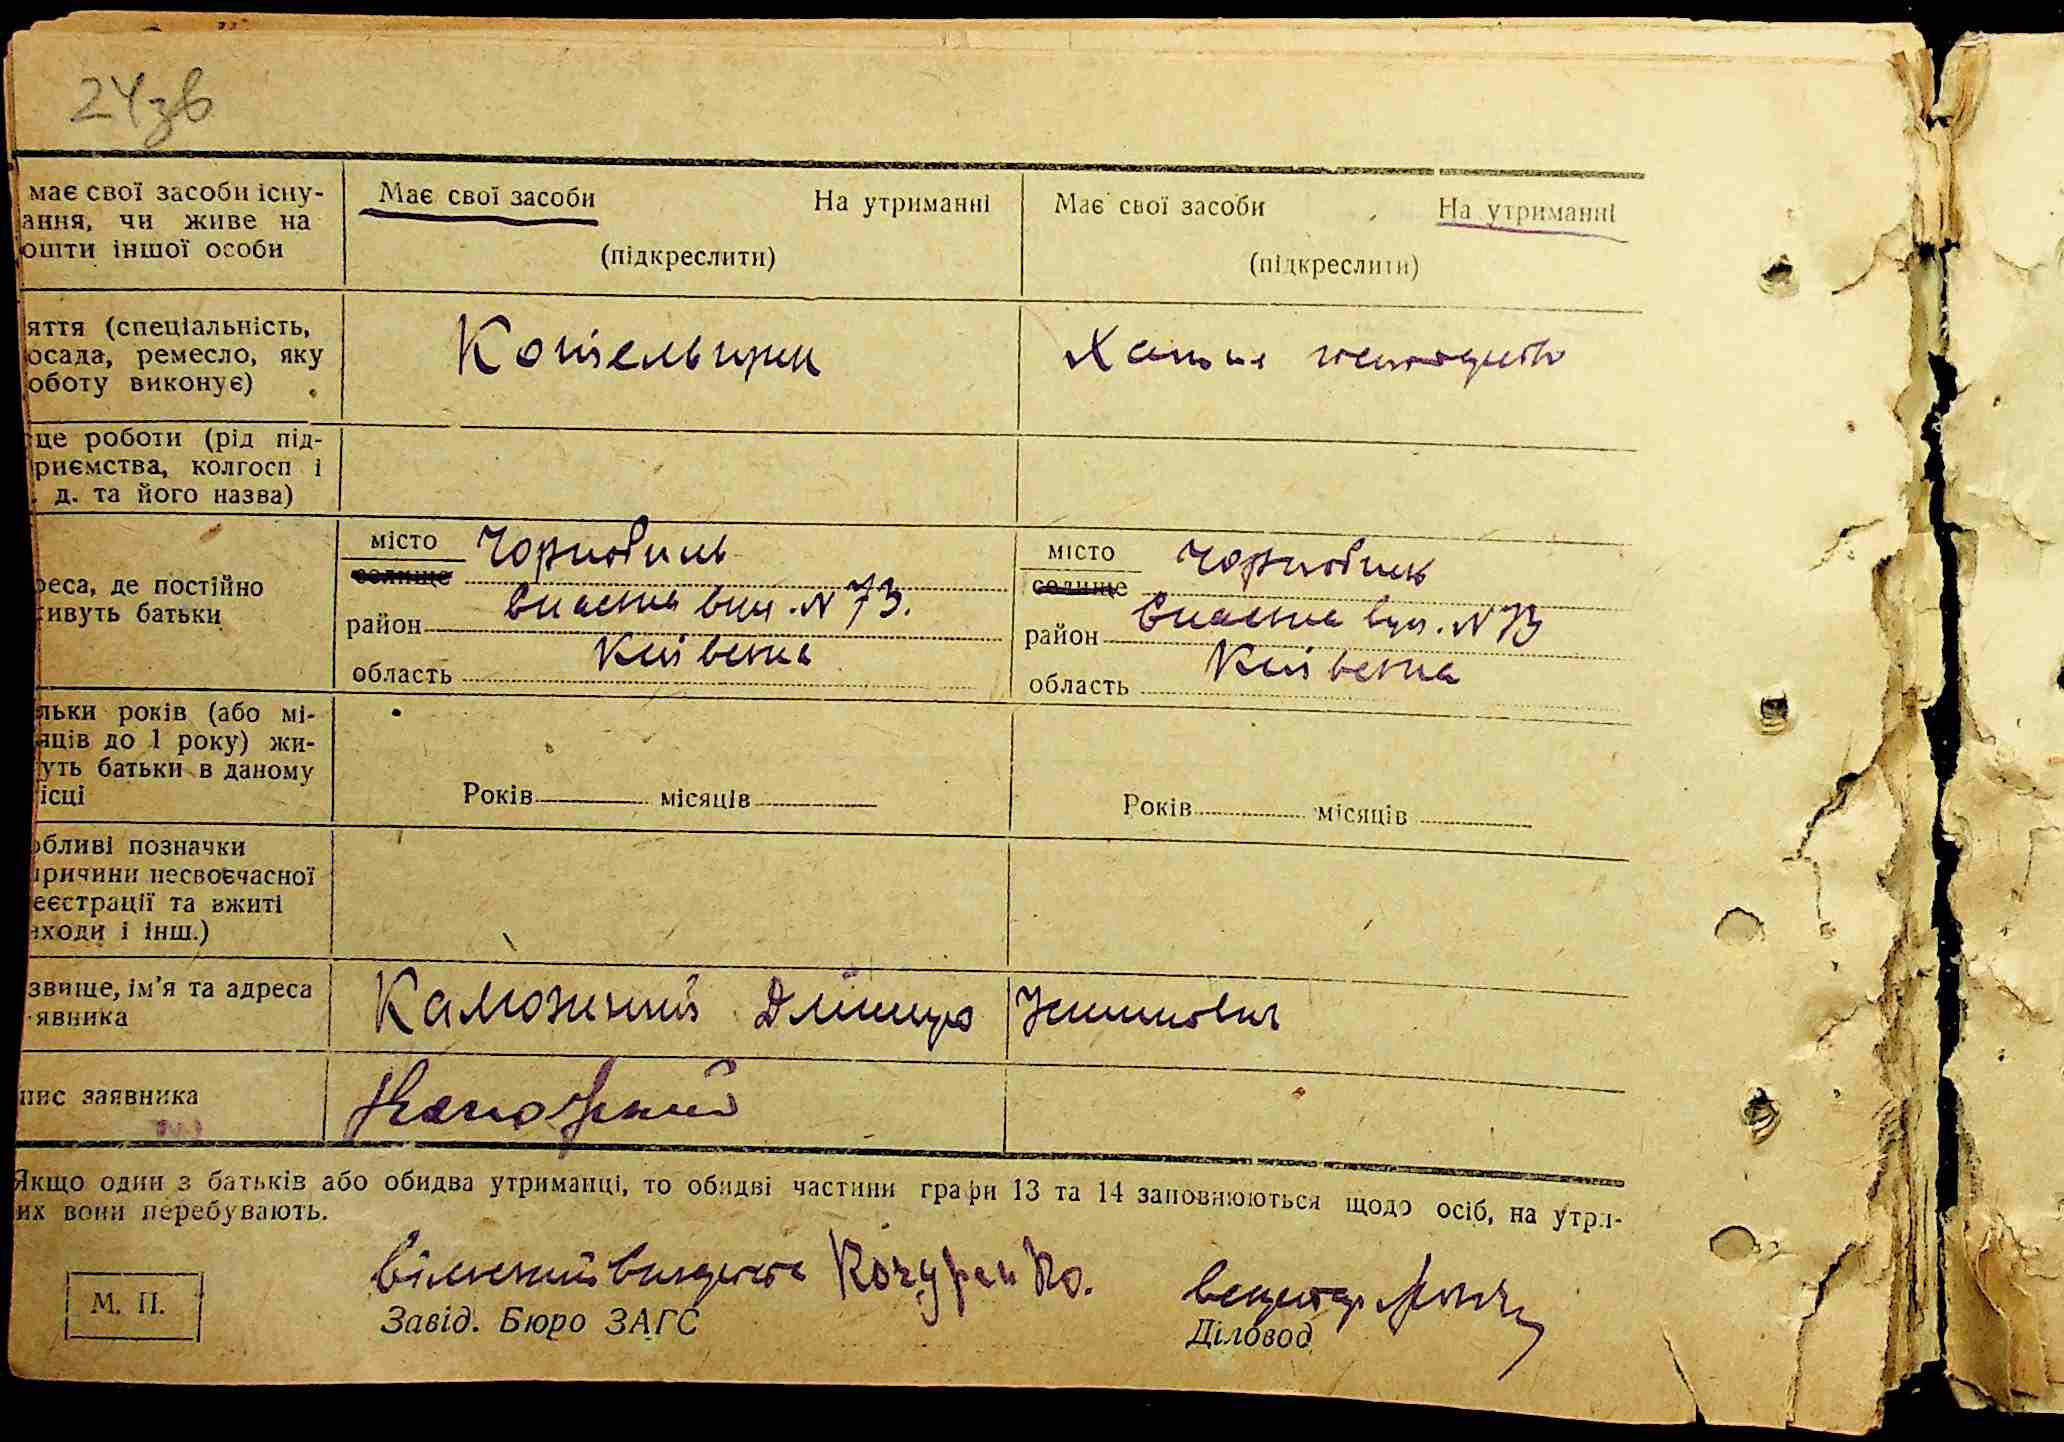 24зв
має свої засоби існу-
ання, чи живе на
ошти іншої особи
Має свої засоби На утриманні
(підкреслити)
Має свої засоби На утриманні
(підкреслити)
яття (спеціальність,
осада, ремесло, яку
оботу виконує)
Котельник
Хатня
це роботи (рід під-
приємства, колгосп і
. д. та його назва)
реса, де постійно
ивуть батьки
місто Чорнобиль
селище
район вул. N 73.
область Київська
місто Чорнобиль
селище
район вул. N 73
область Київська
льки років (або мі-
яців до 1 року) жи-
уть батьки в даному
ісці
Років місяців
Років місяців
обливі позначки
причини несвоєчасної
еєстрації та вжиті
аходи і інш.)
звище, ім'я та адреса
явника
Калюжний Дмитро
пис заявника
Якщо один з батьків або обидва утриманці, то обидві частини графи 13 та 14 заповнюються щодо осіб, на утри-
их вони перебувають.
М. П.
Кочуренко.
Завід. Бюро ЗАГС
Діловод